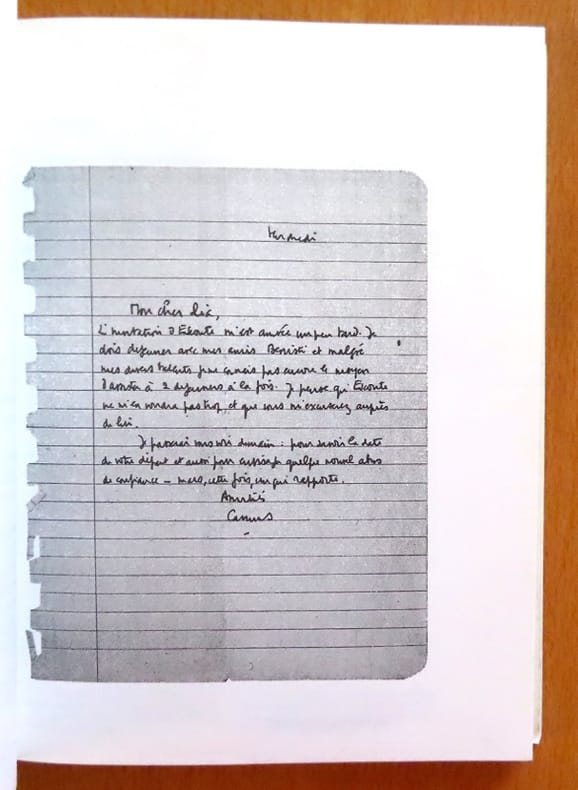 Vendredi
Mon cher
L'invitation d' m'est arrivée un peu tard. Je
dois déjeuner avec mes amis et malgré
mes divers talents je ne connais pas encore le moyen
d'assister à 2 déjeuners à la fois. Je pense qu'
ne m'en voudra pas trop, et que vous m'excuserez auprès
de lui.
Je passerai vous voir demain : pour savoir la date
de votre départ et aussi pour quelque nouvel abus
de confiance – mais, cette fois, un qui rapporte.
Amitiés
Camus